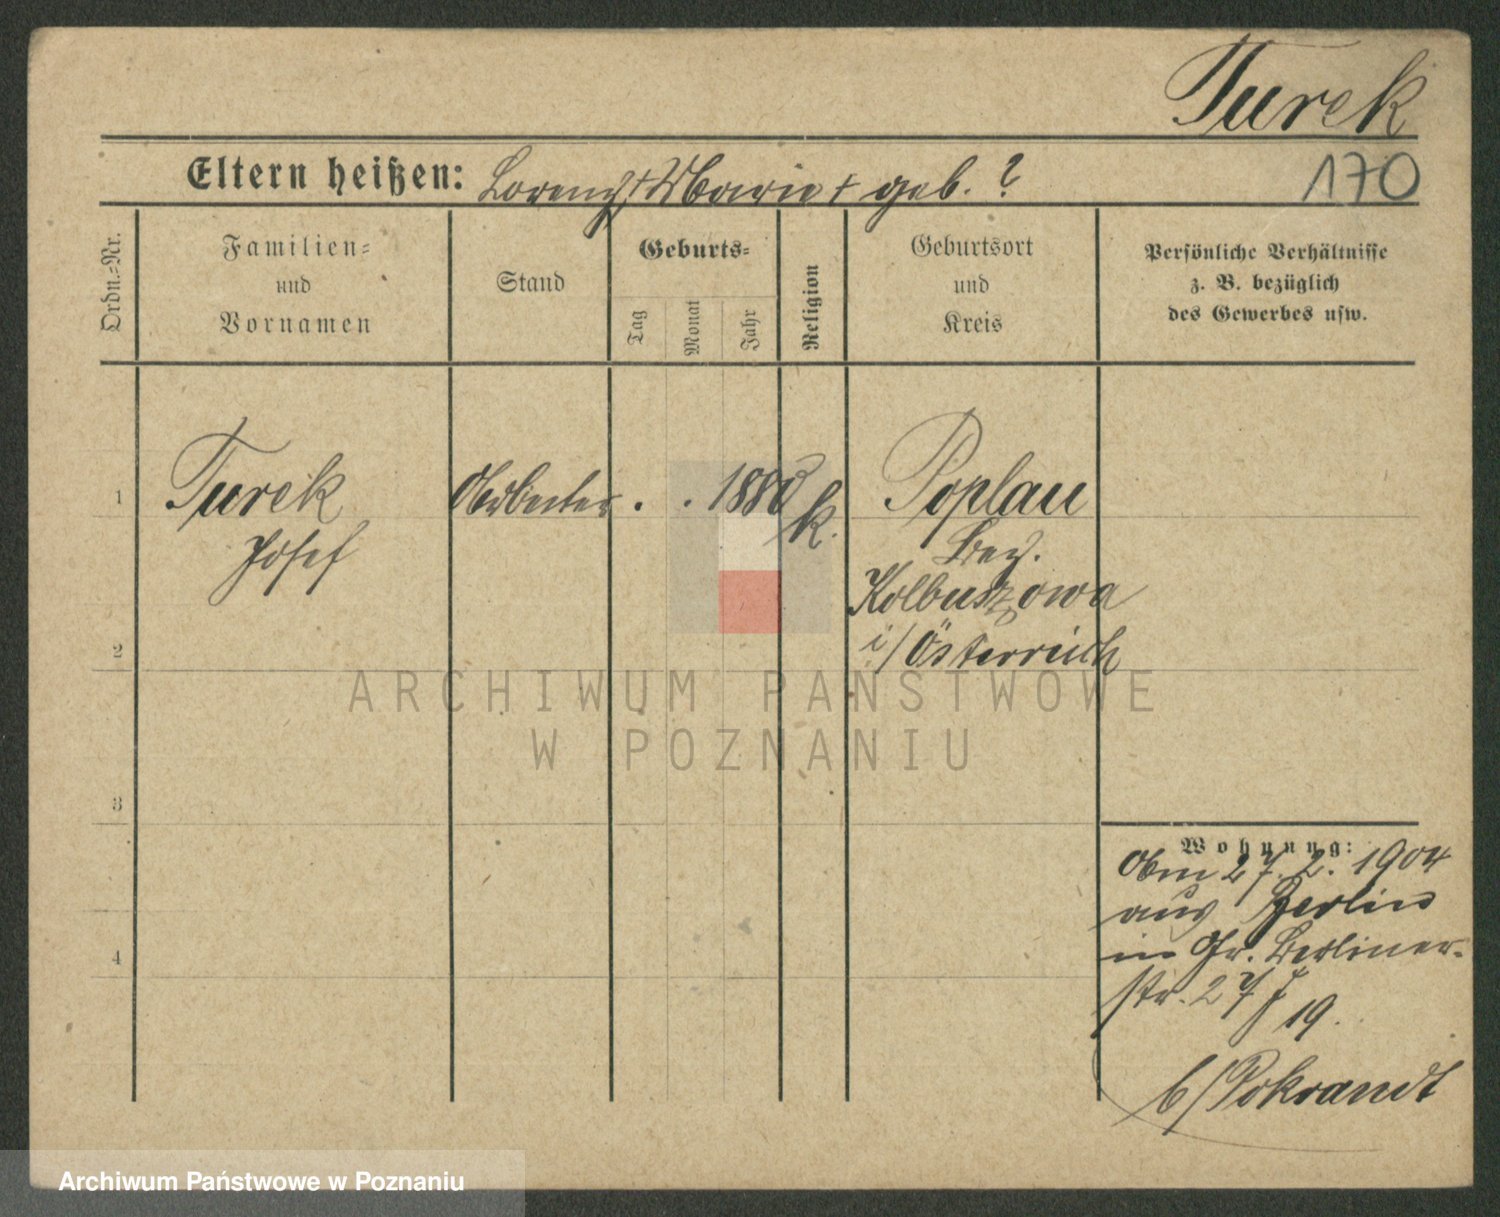 Turek
Eltern heißen: Lorenz + Marie + geb. ?
170
Ordn.=Nr.
Familien=
und
Vornamen
Stand
Geburts=
Tag
Monat
Jahr
Religion
Geburtsort
und
Kreis
Persönliche Verhältnisse
z. B. bezüglich
des Gewerbes usw.
1
Turek
Josef
Arbeiter
. . 1880
k.
Poplau
Bez.
Kolbuszowa
i/Österreich
2
3
4
ARCHIWUM PAŃSTWOWE
W POZNANIU
Wohnung:
Am 27. 2. 1904
aus Berlin
in Gr. Berliner-
str. 27
19.
b/Pokrandt
Archiwum Państwowe w Poznaniu